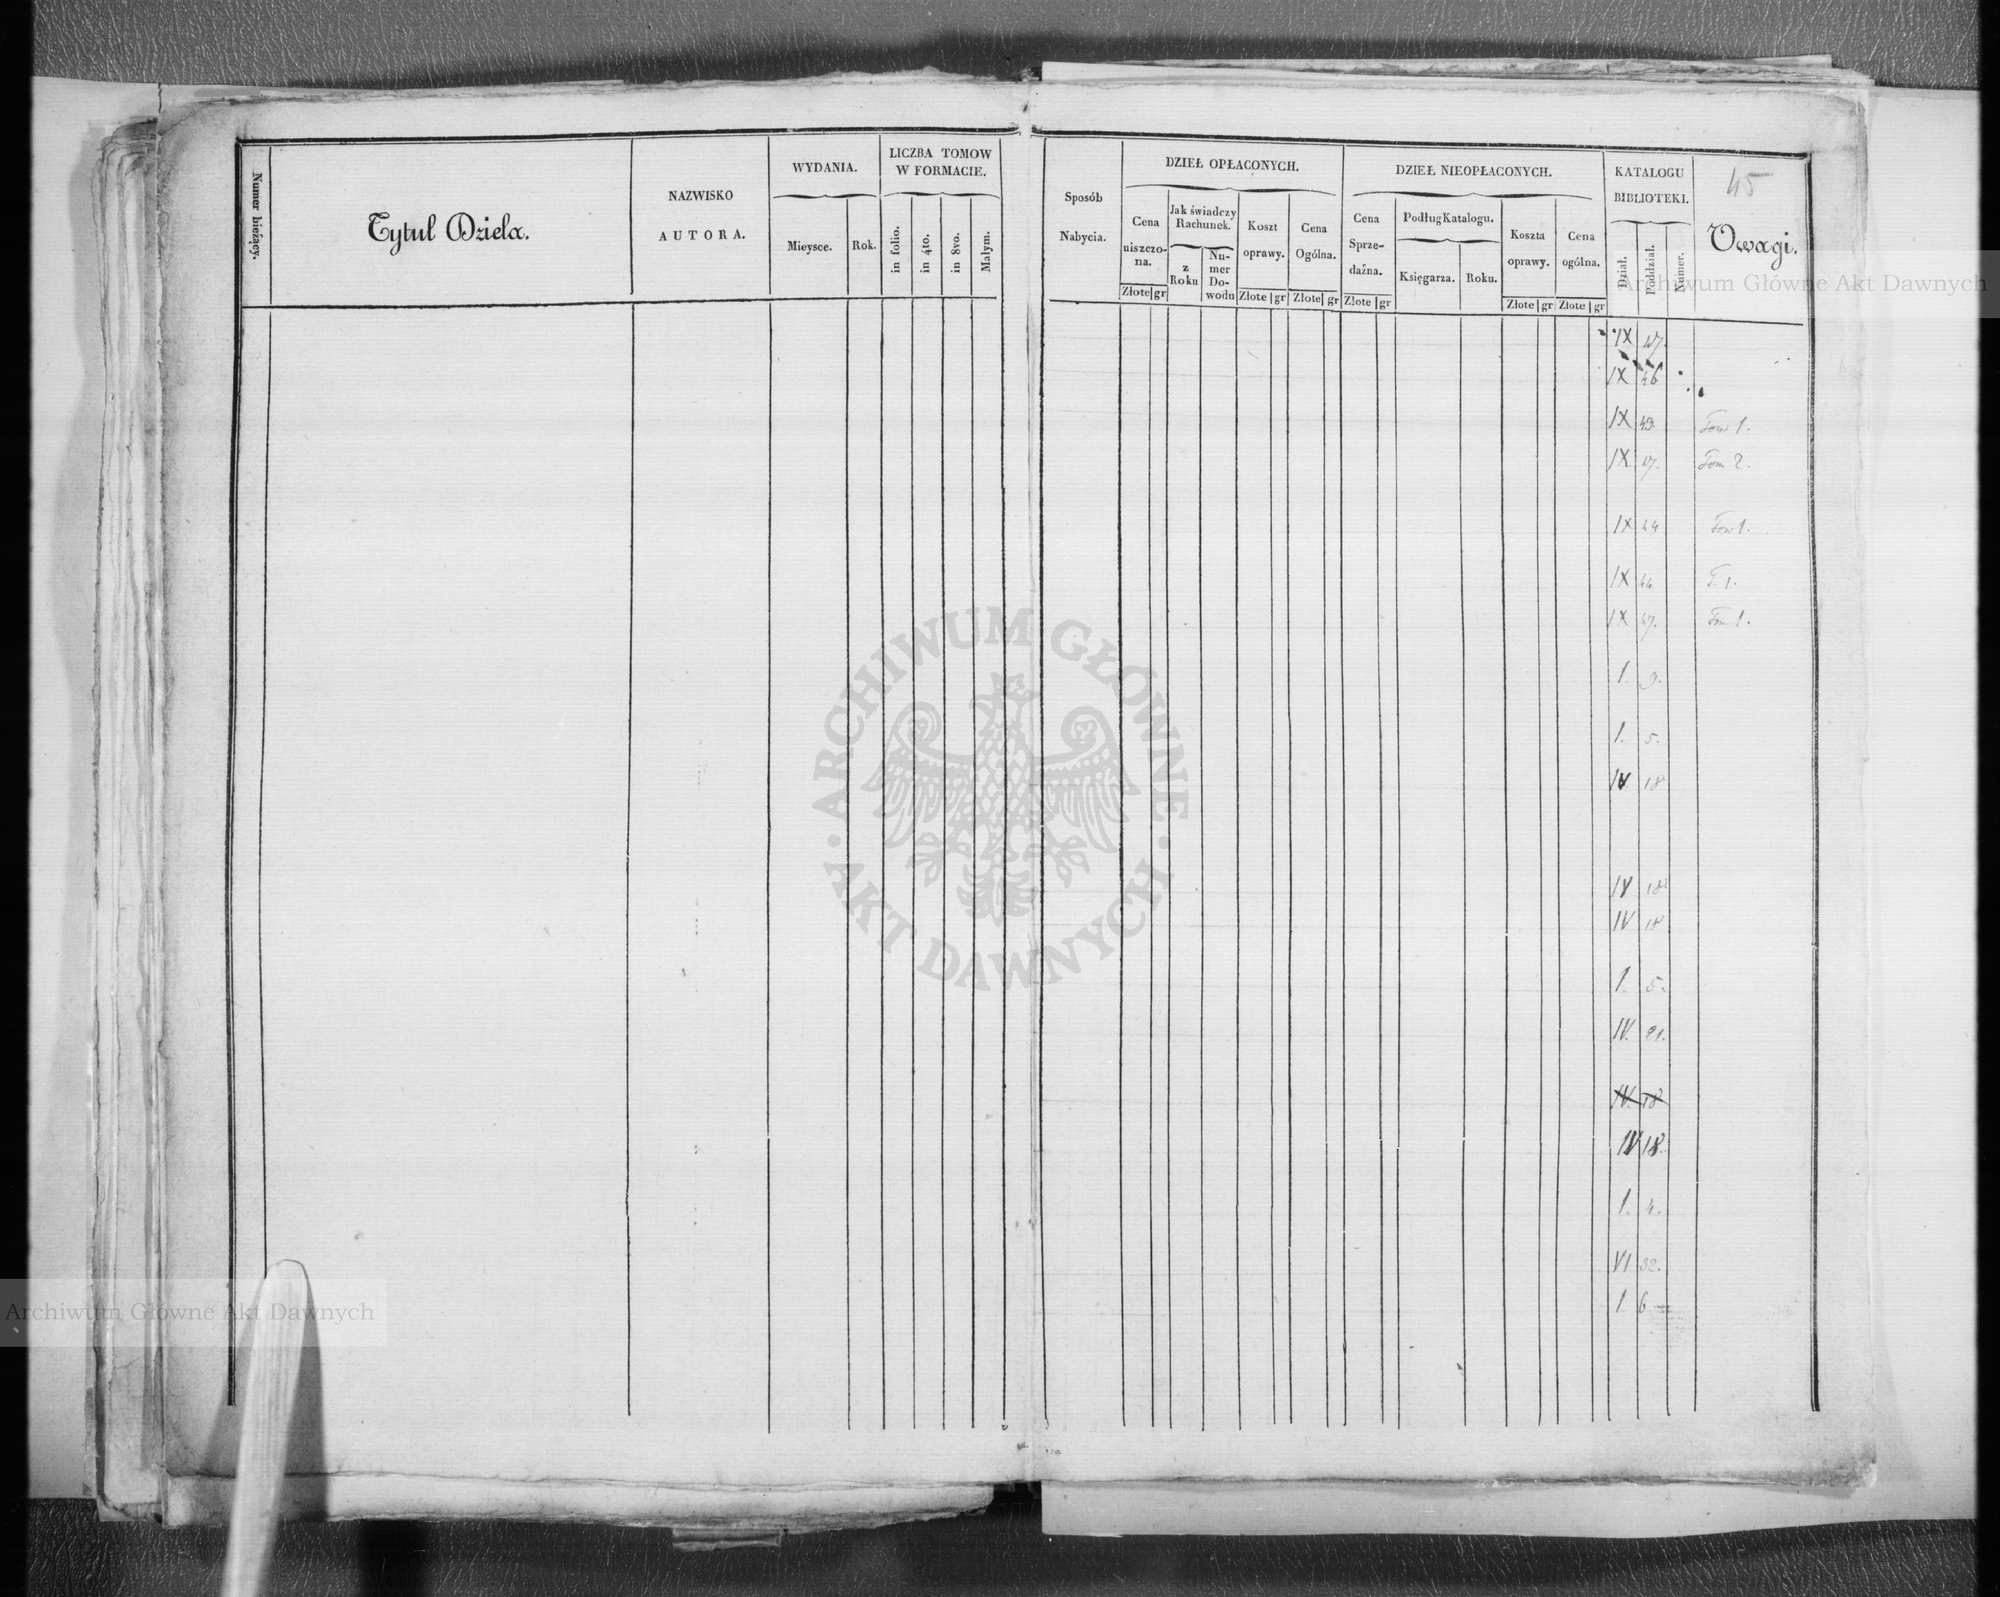 Numer bieżący.
Tytuł Dzieła.
NAZWISKO
AUTORA.
WYDANIA.
Mieysce.
Rok.
LICZBA TOMOW
W FORMACIE.
in folio.
in 4to.
in 8vo.
Małym.
Sposób
Nabycia.
DZIEŁ OPŁACONYCH.
Cena
uiszczo-
na.
Złote gr
Jak świadczy
Rachunek.
z
Roku
Nu-
mer
Do-
wodu
Koszt
oprawy.
Złote gr
Cena
Ogólna.
Złote gr
DZIEŁ NIEOPŁACONYCH.
Cena
Sprze-
daźna.
Złote gr
Podług Katalogu.
Księgarza.
Roku.
Koszta
oprawy.
Złote gr
Cena
ogólna.
Złote gr
KATALOGU
BIBLIOTEKI.
Dział.
Poddział.
Numer.
45
Uwagi.
IX 47.
IX 46
IX 49. Tom 1.
IX. 47. Tom 2.
IX 44 Tom 1.
IX 44 T. 1.
IX 47. Tom 1.
1. 9.
1. 5.
IV 18
IV 18
IV 18
1. 5.
IV. 21.
IV. 18
IV 18.
1. 4.
VI 32.
1. 6.
Archiwum Główne Akt Dawnych
ARCHIWUM GŁÓWNE
AKT DAWNYCH
Archiwum Główne Akt Dawnych